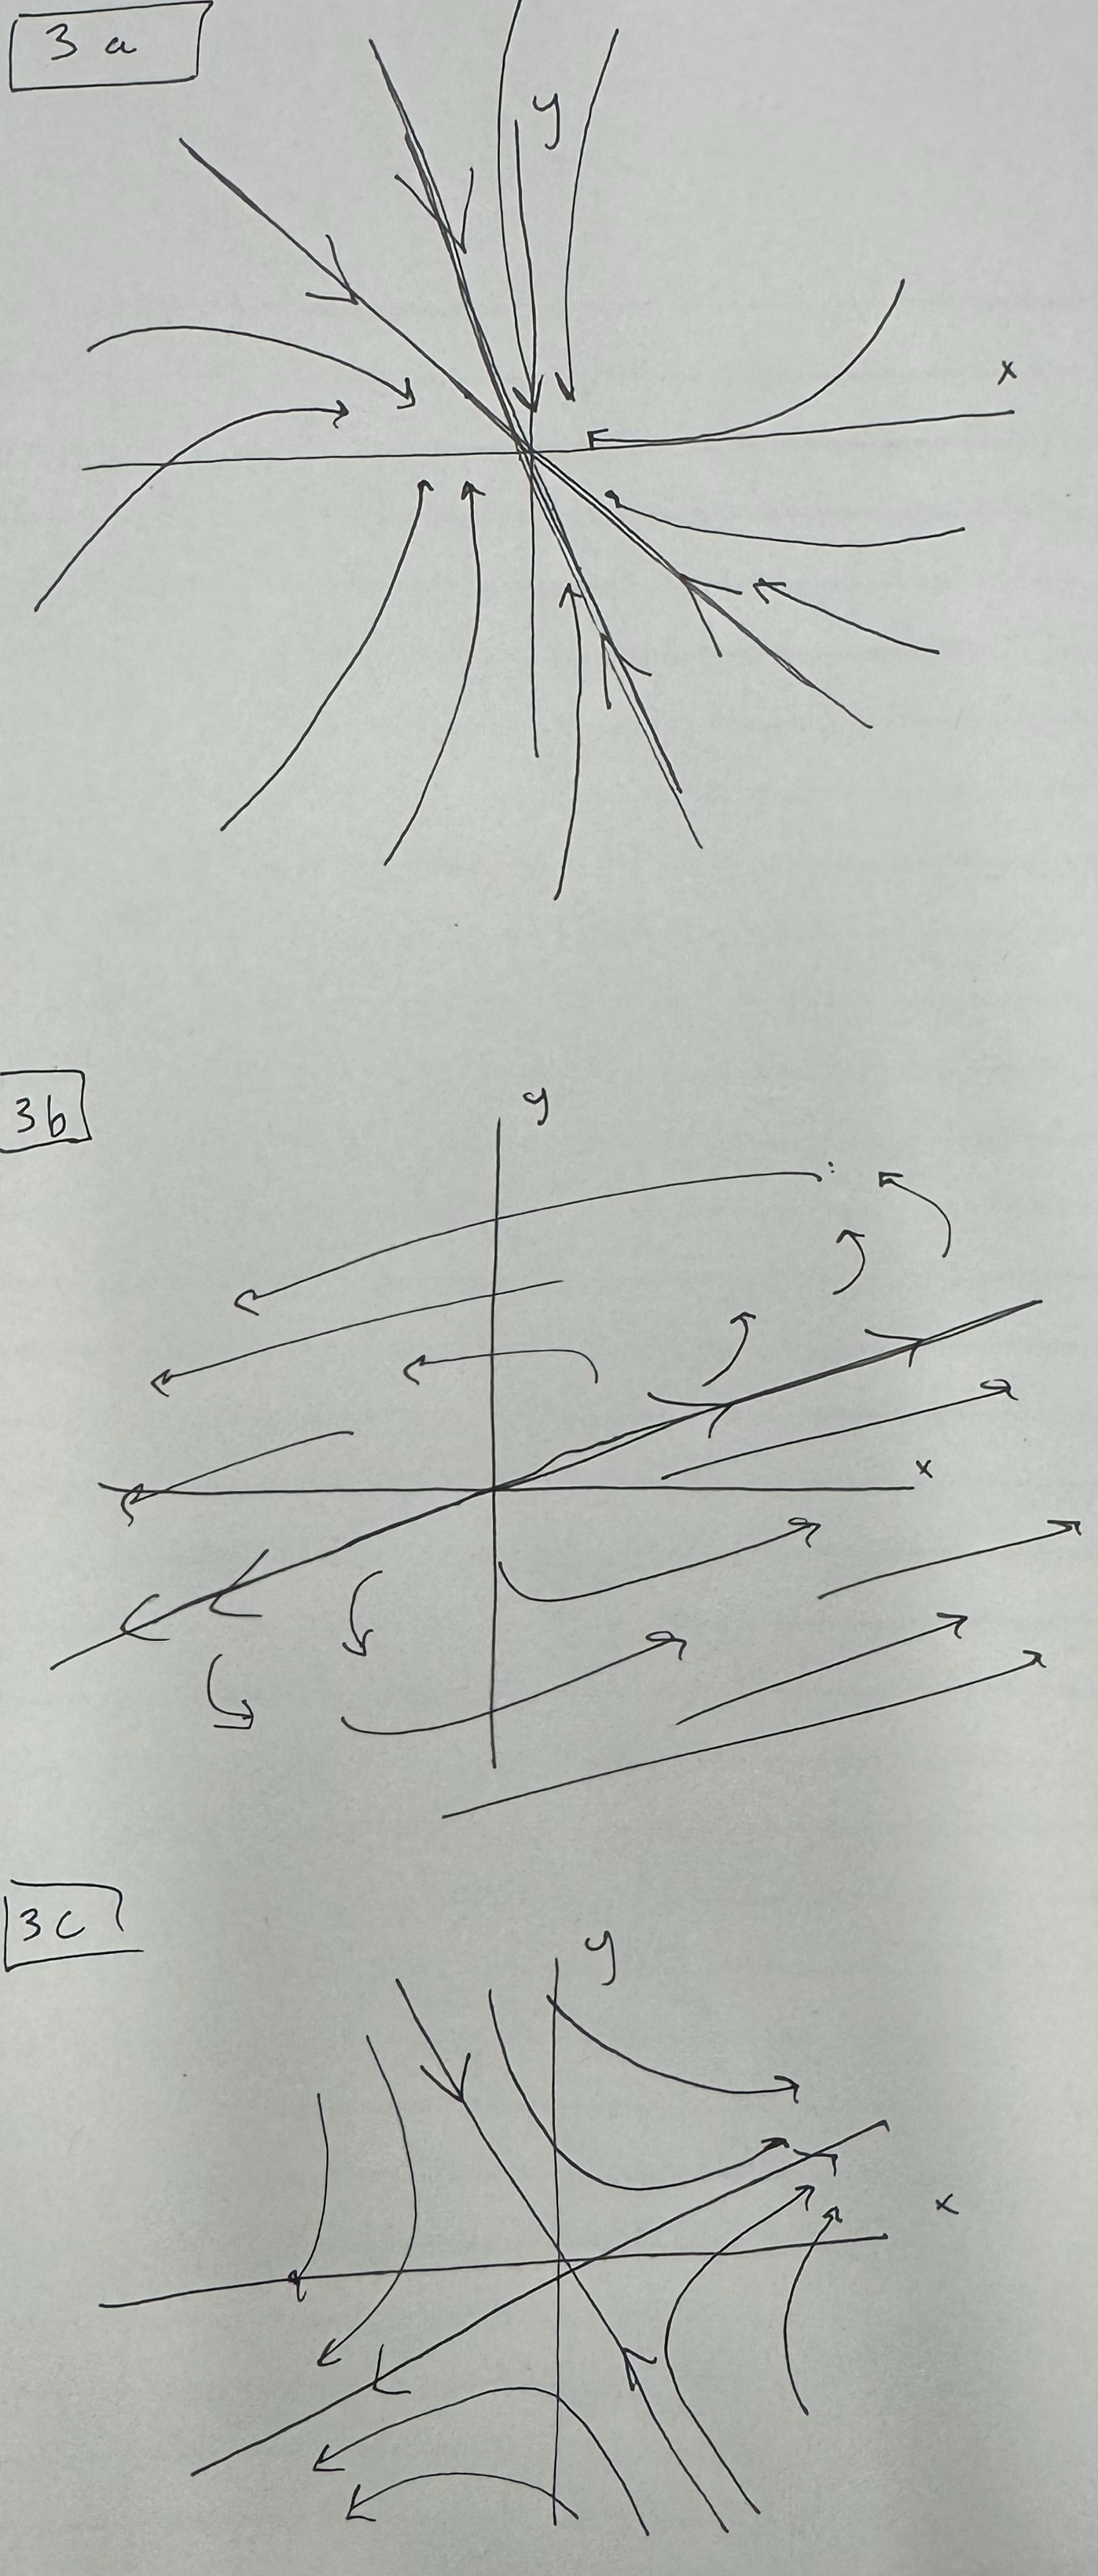 3 a
y
x
3b
y
x
3c
y
x